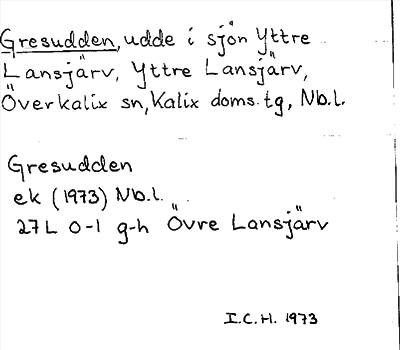 Gresudden, udde i sjön Yttre
Lansjärv, Yttre Lansjärv,
Överkalix sn, Kalix doms.tg, Nb.l.
Gresudden
ek (1973) Nb.l.
27L 0-1 g-h Övre Lansjärv
I.C.H. 1973